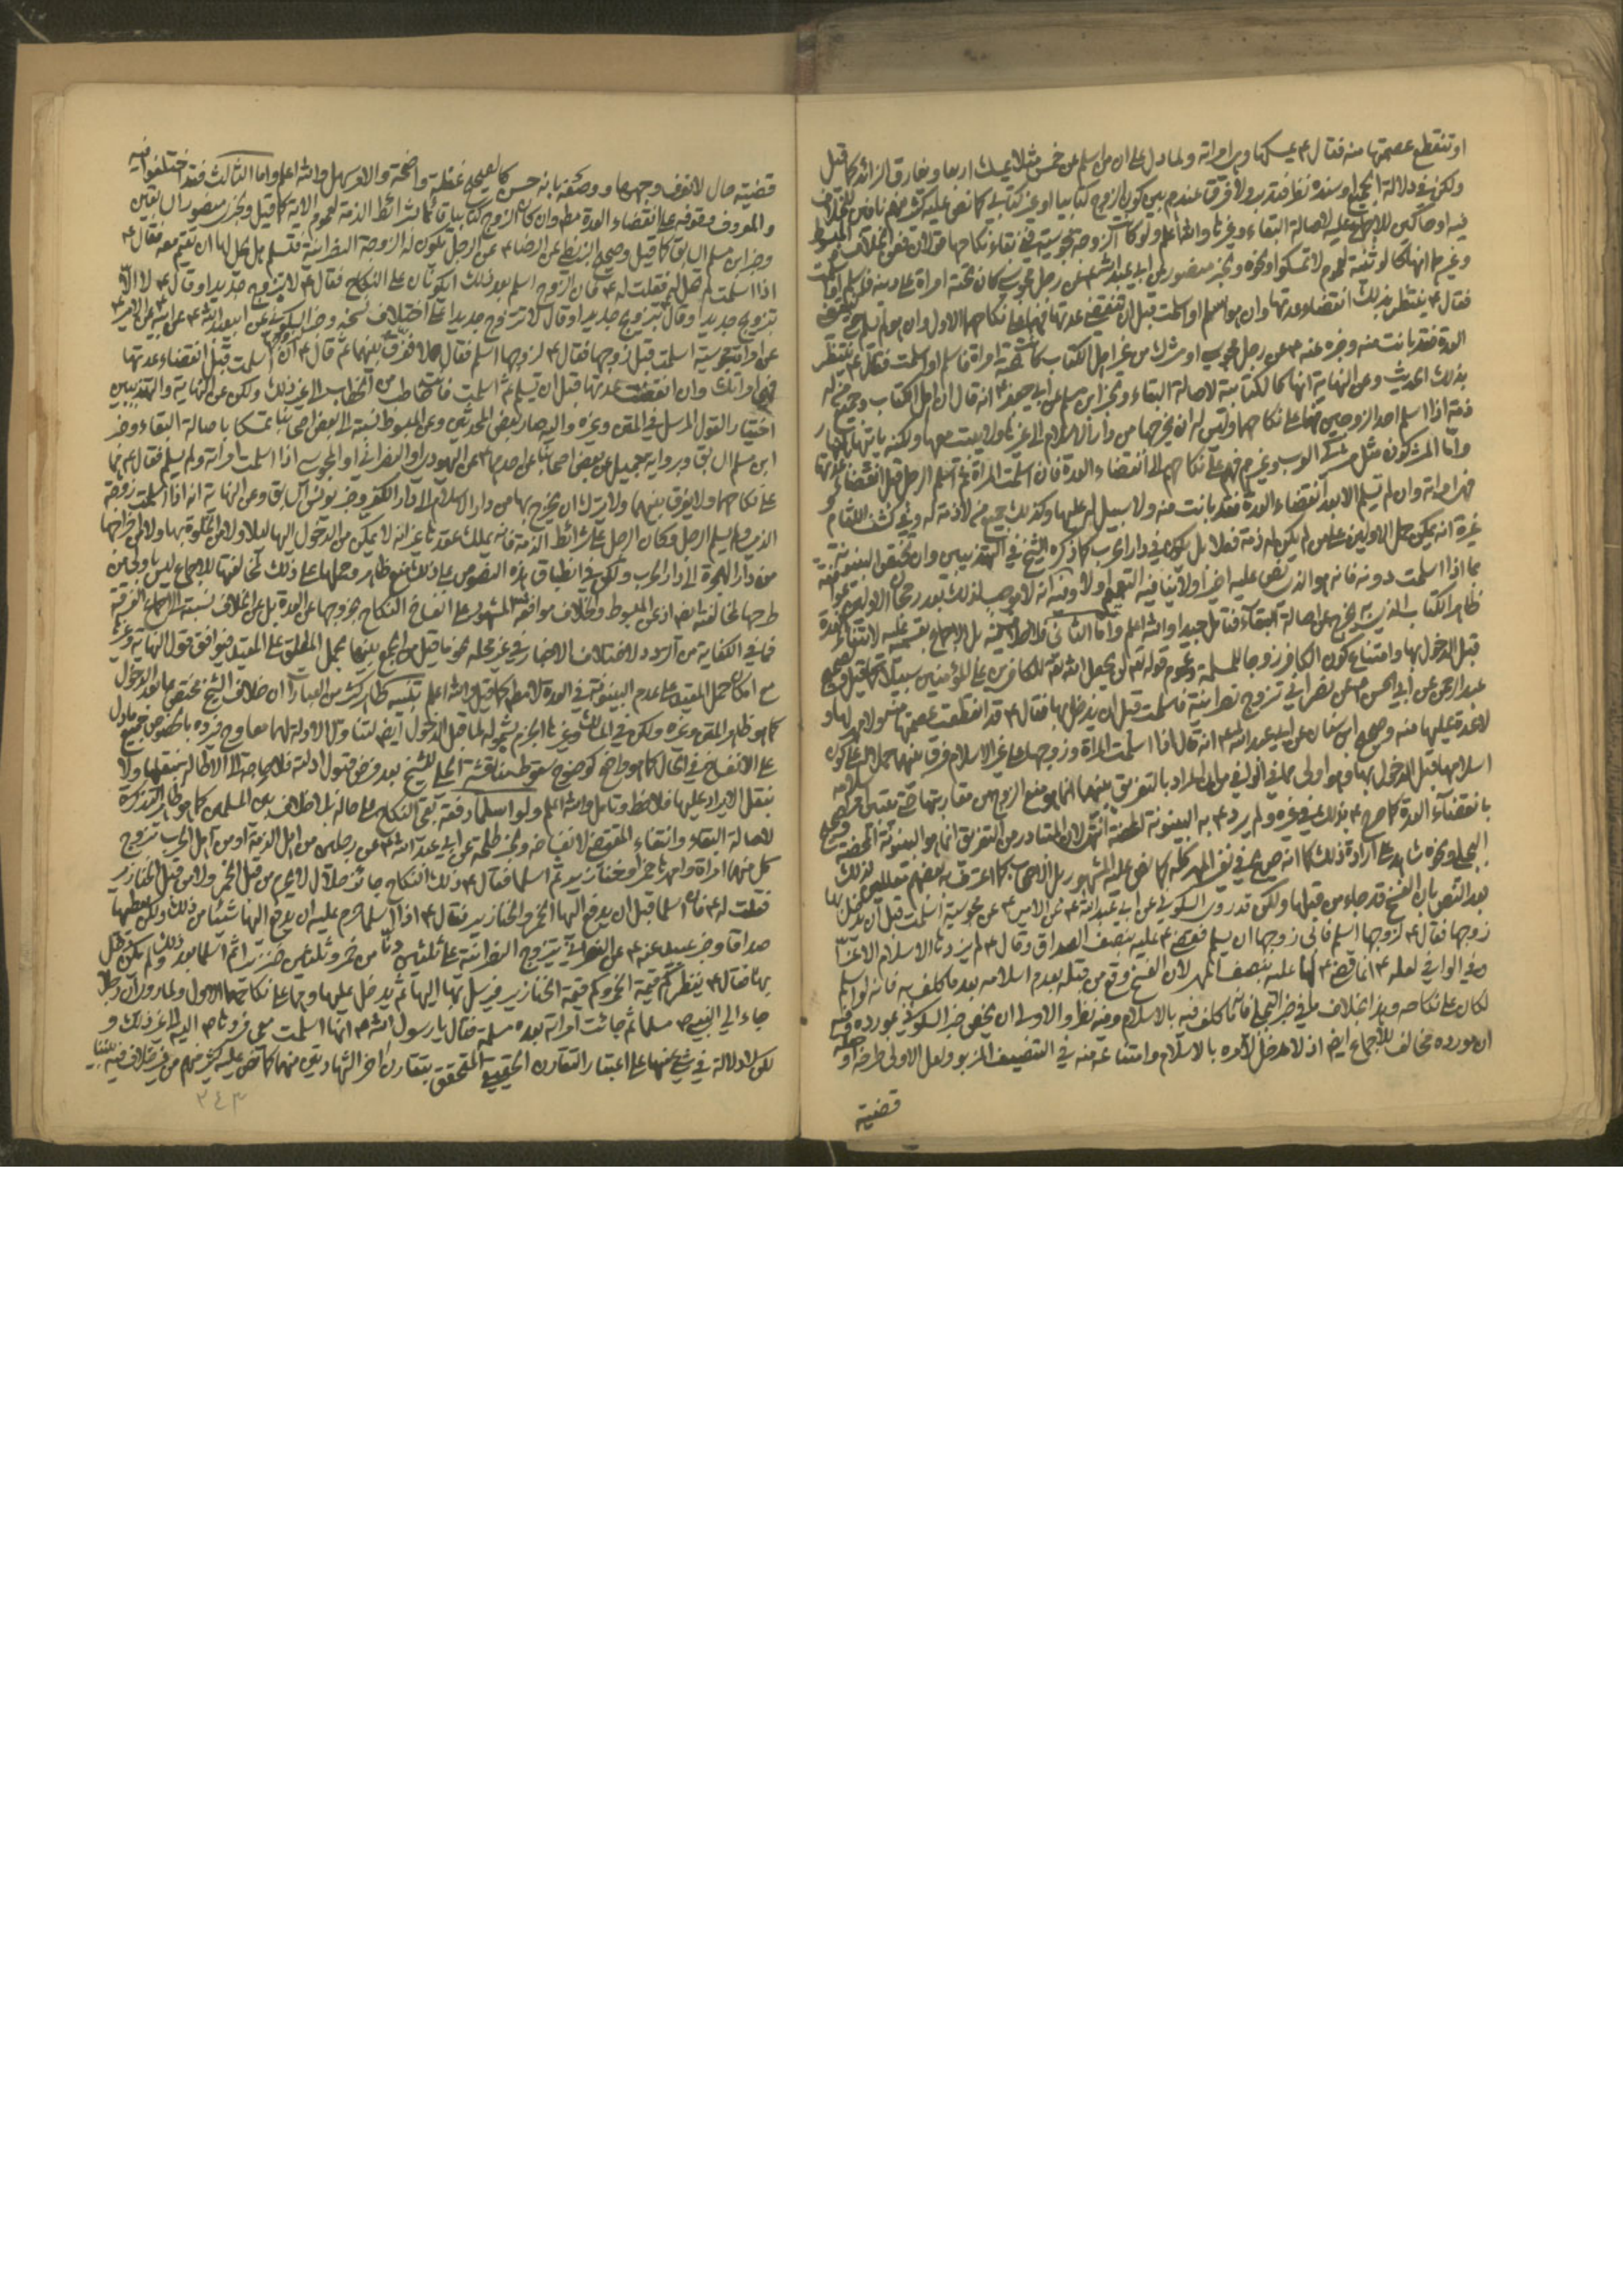 او تنقطع عصمتها منه فقال ع يمسكها وهي امراته ولما دل على ان من اسلم عن خمس مثلا يمسك اربعا ويفارق الزائد كما قيل
ولكن في دلالة الجميع او سنده نظر فتدبر ولا فرق عندهم بين كون الزوج كتابيا او غير كتابي كما نص عليه كثير منهم
فيه او حاكين للاجماع عليه لاصالة البقاء وغيرها والله اعلم ولو كانت الزوجة مجوسية ففي بقاء نكاحها قولان فعن الخلاف المبسوط
وغيرهما انها كالوثنية لعموم لا تمسكوا ونحوه وبخبر منصور عن ابي عبد الله ع عن رجل مجوسي كان تحته امراة على دينه فاسلم او اسلمت
فقال ع ينتظر بذلك انقضاء عدتها وان هو اسلم او اسلمت قبل ان تنقضي عدتها فهما على نكاحهما الاول وان هو لم يسلم حتى تنقضي
العدة فقد بانت منه وخبره عنه ع عن رجل مجوسي او مشرك من غير اهل الكتاب كانت تحته امراة فاسلم او اسلمت قال ع ينتظر
بذلك الحديث وعن النهاية انها كالكتابية لاصالة البقاء وبخبر ابن مسلم عن ابي جعفر ع انه قال ان اهل الكتاب وجميع من له
ذمة اذا اسلم احد الزوجين فهما على نكاحهما وليس له ان يخرجها من دار الاسلام الى غيرها ولا يبيت معها ولكنه ياتيها بالنهار
واما المشركون مثل مشركي العرب وغيرهم فهم على نكاحهم الى انقضاء العدة فان اسلمت المراة ثم اسلم الرجل قبل انقضاء عدتها
فهي امراته وان لم يسلم الا بعد انقضاء العدة فقد بانت منه ولا سبيل له عليها وكذلك جميع من لا ذمة له وفي كشف اللثام
غيره انه يمكن حمل الاولين على من لم يكن له ذمة فعلا بل يكون في دار الحرب كما ذكره الشيخ في التهذيبين وان تحقق البينونة
بما اذا اسلمت دونه فانه هو الذي نص عليه اخيرا ولا ينافيه التعميم اولا وفيه انه لا موجب لذلك بعد رجحان الاولين
ظاهر الكتاب الذي به يخرج عن اصالة البقاء فتامل جيدا والله اعلم واما الثاني فلا خلاف فيه بل الاجماع بقسميه عليه لانتفاء العدة
قبل الدخول بها وامتناع كون الكافر زوجا للمسلمة وعموم قوله تعالى لن يجعل الله للكافرين على المؤمنين سبيلا كما قيل وصحيح
عبد الرحمن عن ابي الحسن ع عن نصراني تزوج نصرانية فاسلمت قبل ان يدخل بها فقال ع قد انقطعت عصمتها منه ولا مهر لها و
لا عدة عليها منه وصحيح ابن سنان عن ابي عبد الله ع انه قال اذا اسلمت المراة وزوجها على غير الاسلام فرق بينهما
اسلامها قبل الدخول بها وهو اولى مما في الوافي من ان المراد بالتفريق بينهما انما هو منع الزوج من مقاربتها حتى يتبين
بانقضاء العدة كما صرح ع بذلك في غيره ولم يرد ع به البينونة المحضة انتهى لان المتبادر من التفريق انما هو البينونة المحضة
بعد النص بان الفسخ قد جاء من قبلها ولكن قد روى السكوني عن ابي عبد الله ع عن الامير ع عن مجوسية اسلمت قبل ان يدخل بها
زوجها فقال ع لزوجها اسلم فابى زوجها ان يسلم فقضى ع عليه بنصف الصداق وقال ع لم يزدها الاسلام الا عزا
وفي الوافي لعله ع انما قضى ع لها عليه بنصف المهر لان الفسخ وقع من قبله بعدم اسلامه بعد ما كلف به فانه لو اسلم
لكان على نكاحه وهذا بخلاف ما في خبر البجلي فانه ما كلف فيه بالاسلام وفيه نظر والاولى ان يخص خبر السكوني بمورده وفيه
ان مورده مخالف للاجماع ايضا اذ لا مدخل لامره بالاسلام وامتناعه منه في التنصيف المزبور ولعل الاولى طرحه او
قضية
قضية حال لا نعرف وجهها ووصفه بانه حسن كالصحيح غفلة واضحة والامر سهل والله اعلم واما الثالث فقد اختلفوا فيه
والمعروف وقوفه على انقضاء العدة مطلقا وان كان الزوج كتابيا قائما بشرائط الذمة لعموم الاية كما قيل وبخبر منصور السابق
وخبر ابن مسلم السابق كما قيل وصحيح البزنطي عن الرضا ع عن الرجل تكون له الزوجة النصرانية فتسلم هل يحل لها ان تقيم معه فقال ع
اذا اسلمت لم تحل له فقلت له ع فان الزوج اسلم بعد ذلك ايكونان على النكاح فقال ع لا يتزوج جديدا او قال ع لا الا
بتزويج جديد او قال بتزويج جديد او قال لا تتزوج جديدا على اختلاف نسخه وخبر السكوني عن ابي عبد الله ع عن ابيه عن الامير ع
عن امراة مجوسية اسلمت قبل زوجها فقال ع لزوجها اسلم فقال لا ففرق بينهما ثم قال ع ان اسلمت قبل انقضاء عدتها
فهي امراتك وان انقضت عدتها قبل ان تسلم ثم اسلمت فانت خاطب من الخطاب الى غير ذلك ولكن عن النهاية والتهذيبين
اختيار القول المرسل في المتن وغيره واليه صار بعض المحدثين وعن المبسوط نسبته الى بعض اصحابنا تمسكا باصالة البقاء وخبر
ابن مسلم السابق وبرواية جميل عن بعض اصحابنا عن احدهما ع عن اليهودي او النصراني او المجوسي اذا اسلمت امراته ولم يسلم فقال ع هما
على نكاحهما ولا يفرق بينهما ولا يترك ان يخرج بها من دار الاسلام الى دار الكفر وخبر يونس السابق وعن النهاية انه اذا اسلمت زوجة
الذمي ولم يسلم الرجل وكان الرجل على شرائط الذمة فانه يملك عقدها غير انه لا يمكن من الدخول اليها ليلا ولا من الخلوة بها ولا من اخراجها
من دار الهجرة الى دار الحرب ولكن في انطباق هذه النصوص على ذلك منع ظاهر وحملها على ذلك
طرحها لمخالفته ايضا وعن المبسوط والخلاف موافقة المشهور على انفساخ النكاح بخروجها عن العدة بل عن الخلاف نسبته الى اجماع الفرقة
فما في الكفاية من التردد لاختلاف الاخبار في غير محله نحو ما قيل من الجمع بينها بحمل المطلق على المقيد فيوافق قول النهاية
مع امكان حمل المقيد على عدم البينونة في العدة لا مطلقا كما قيل والله اعلم تنبيه ظاهر كثير من العبارات ان خلاف الشيخ مختص بما بعد الدخول
كما هو ظاهر المتن وغيره ولكن في المسالك وغيرها الجزم بشموله لما قبل الدخول ايضا لتناول الادلة لهما معا
على الانفساخ في الحال كما هو واضح كوضوح سقوط مناقشة الحلي للشيخ بعد فرض قبول ادلته فلا حاجة الى الاطالة
بنقل الايراد عليها فلاحظ وتامل والله اعلم ولو اسلما دفعة بقي النكاح على حاله بلا خلاف بين المسلمين كما هو ظاهر التذكرة
لاصالة البقاء وانتفاء المقتضي لانفساخه وبخبر طلحة عن ابي عبد الله ع عن رجلين من اهل الذمة او من اهل الحرب تزوج
كل منهما امراة وامهرها خمرا وخنازير ثم اسلما فقال ع ذلك النكاح جائز حلال لا يحرم من قبل الخمر ولا من قبل الخنازير
فقلت له ع فان اسلما قبل ان يدفع اليها الخمر والخنازير فقال ع اذا اسلما حرم عليه ان يدفع اليها شيئا من ذلك ولكن يعطيها
صداقا وخبر عبيد عنه ع عن النصراني يتزوج النصرانية على ثلاثين دنا من خمر وثلاثين خنزيرا ثم اسلما بعد ذلك ولم يكن دخل
بها فقال ع ينظر كم قيمة الخمر وكم قيمة الخنازير فيرسل بها اليها ثم يدخل عليها وهما على نكاحهما الاول ولما روي ان رجلا
جاء الى النبي ص مسلما ثم جائت امراته بعده مسلمة فقال يا رسول الله ص انها اسلمت معي فردها ص اليه الى غير ذلك و
لكن لا دلالة في شيء منها على اعتبار التقارن الحقيقي المتحقق بتقارن اخر الشهادتين منهما كما نص عليه كثير منهم من غير خلاف فيه بيننا
٢٤٣